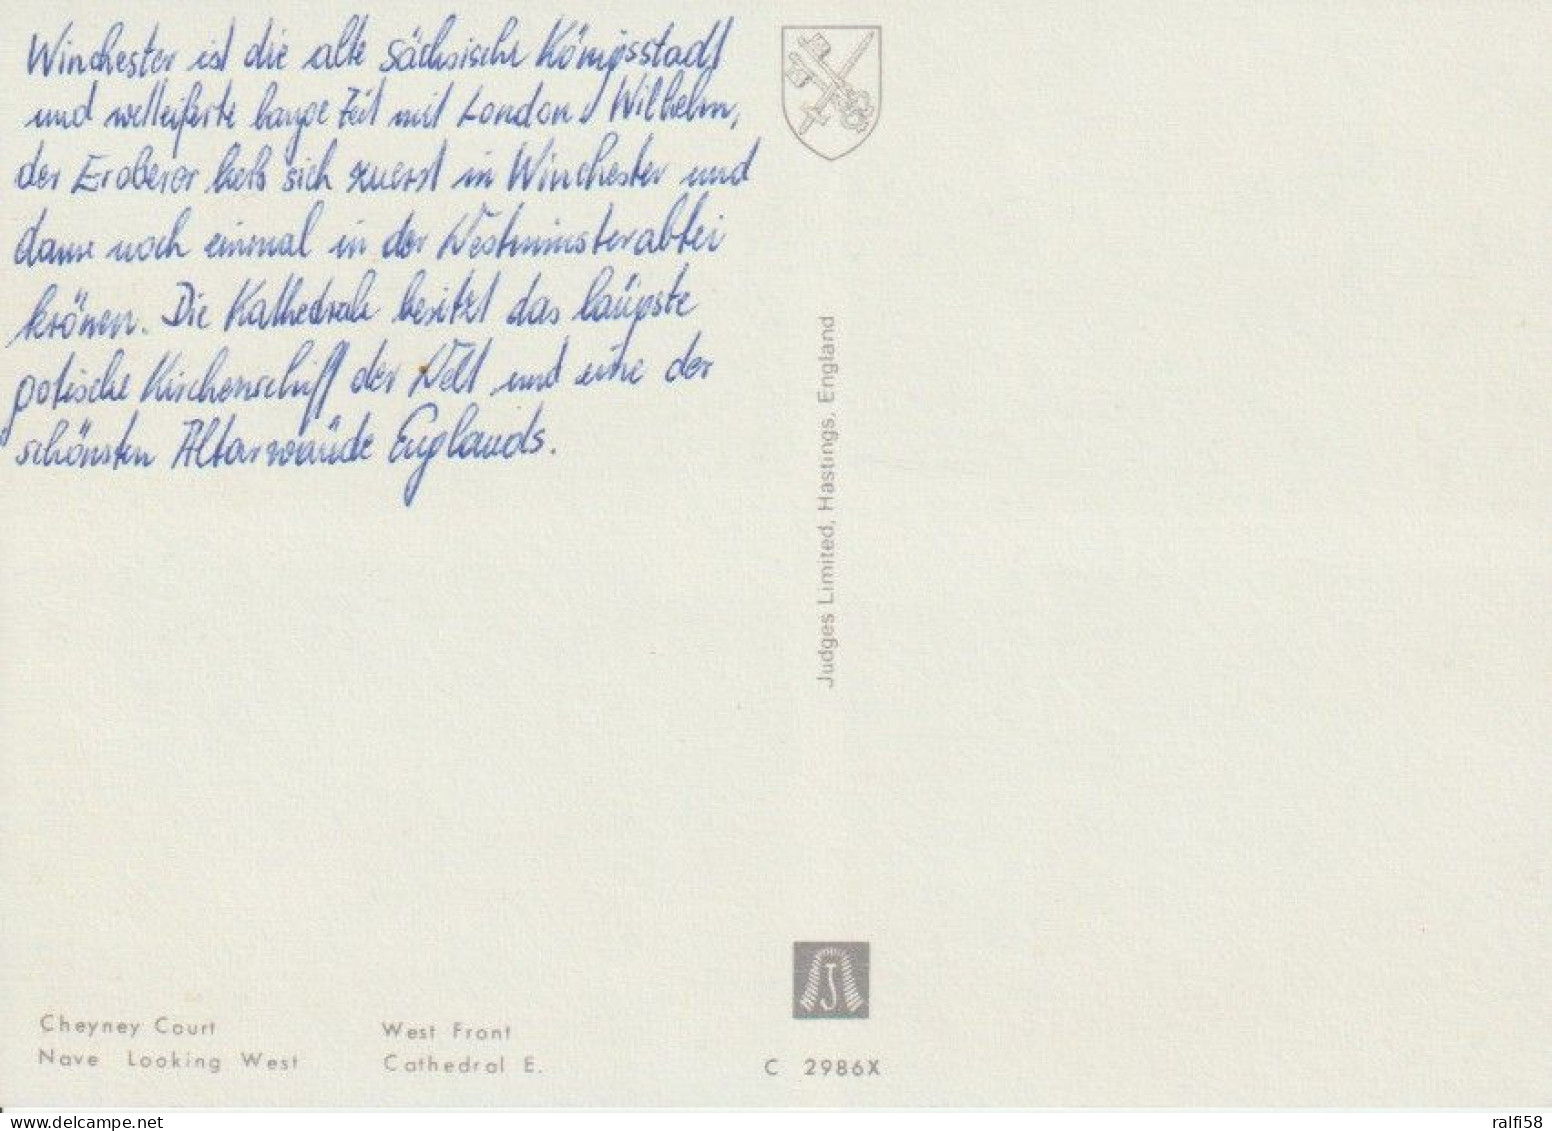 Winchester ist die alte sächsische Königsstadt
und wetteiferte lange Zeit mit London. Wilhelm,
der Eroberer ließ sich zuerst in Winchester und
dann noch einmal in der Westminsterabtei
krönen. Die Kathedrale besitzt das längste
gotische Kirchenschiff der Welt und eine der
schönsten Altarwände Englands.
Judges Limited, Hastings, England
J
Cheyney Court
West Front
Nave Looking West
Cathedral E.
C 2986X
ralfi58